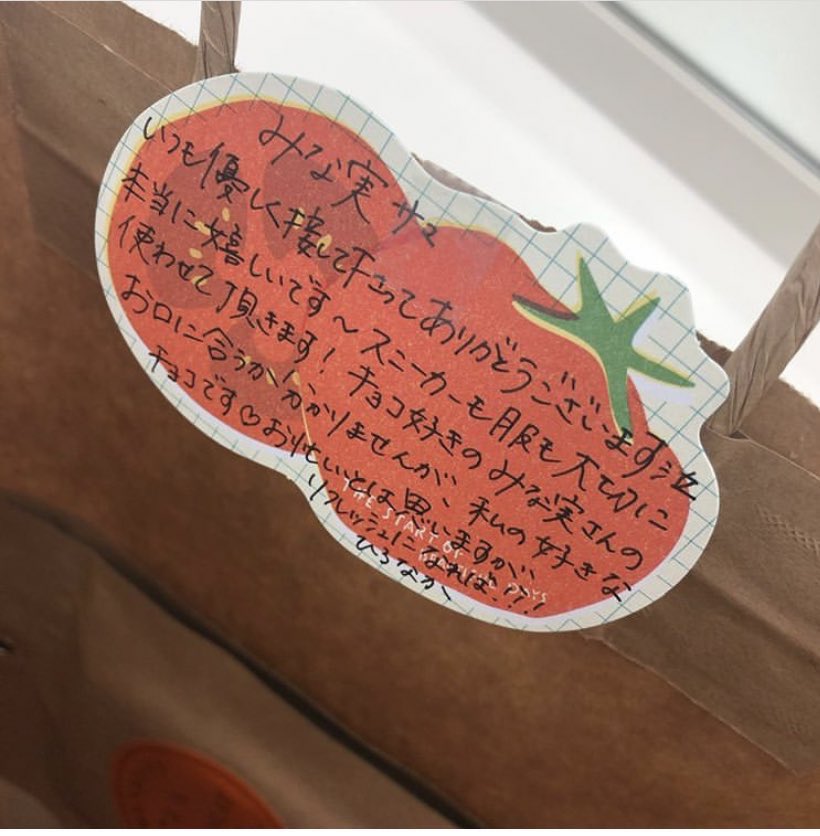 みな実サマ
いつも優しく接して下さってありがとうございます泣
本当に嬉しいです〜スニーカーも服も大切に
使わせて頂きます！チョコ好きのみな実さんの
お口に合うか分かりませんが、私の好きな
チョコです♡お忙しいとは思いますが、
リフレッシュになれば！！！
ひろなか
THE START OF
BEAUTIFUL DAYS